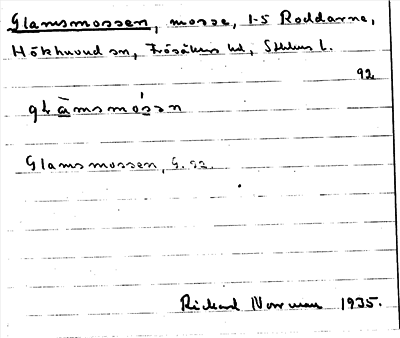 Glamsmossen, mosse, 1-5 Roddarne,
Hökhuvud sn, Frösåkers hd, Sthlms l.
92
gl̀amsmósṣn
Glamsmossen, G. 92.
Rickard Norrman 1935.